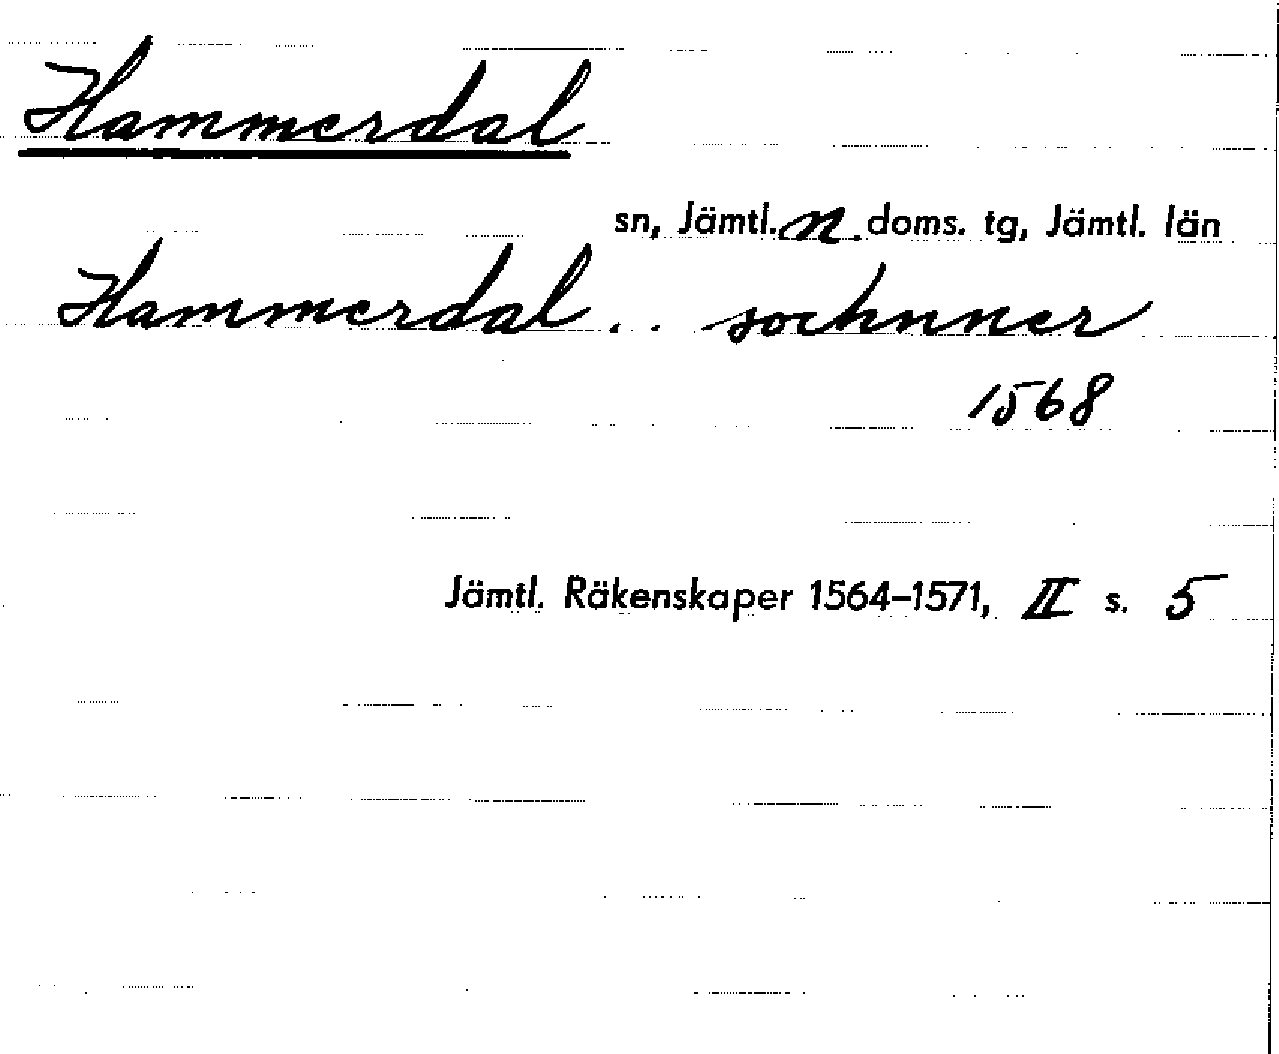 Hammerdal
sn, Jämtl. n. doms. tg, Jämtl. län
Hammerdal . . sochnner
1568
Jämtl. Räkenskaper 1564–1571, II s. 5